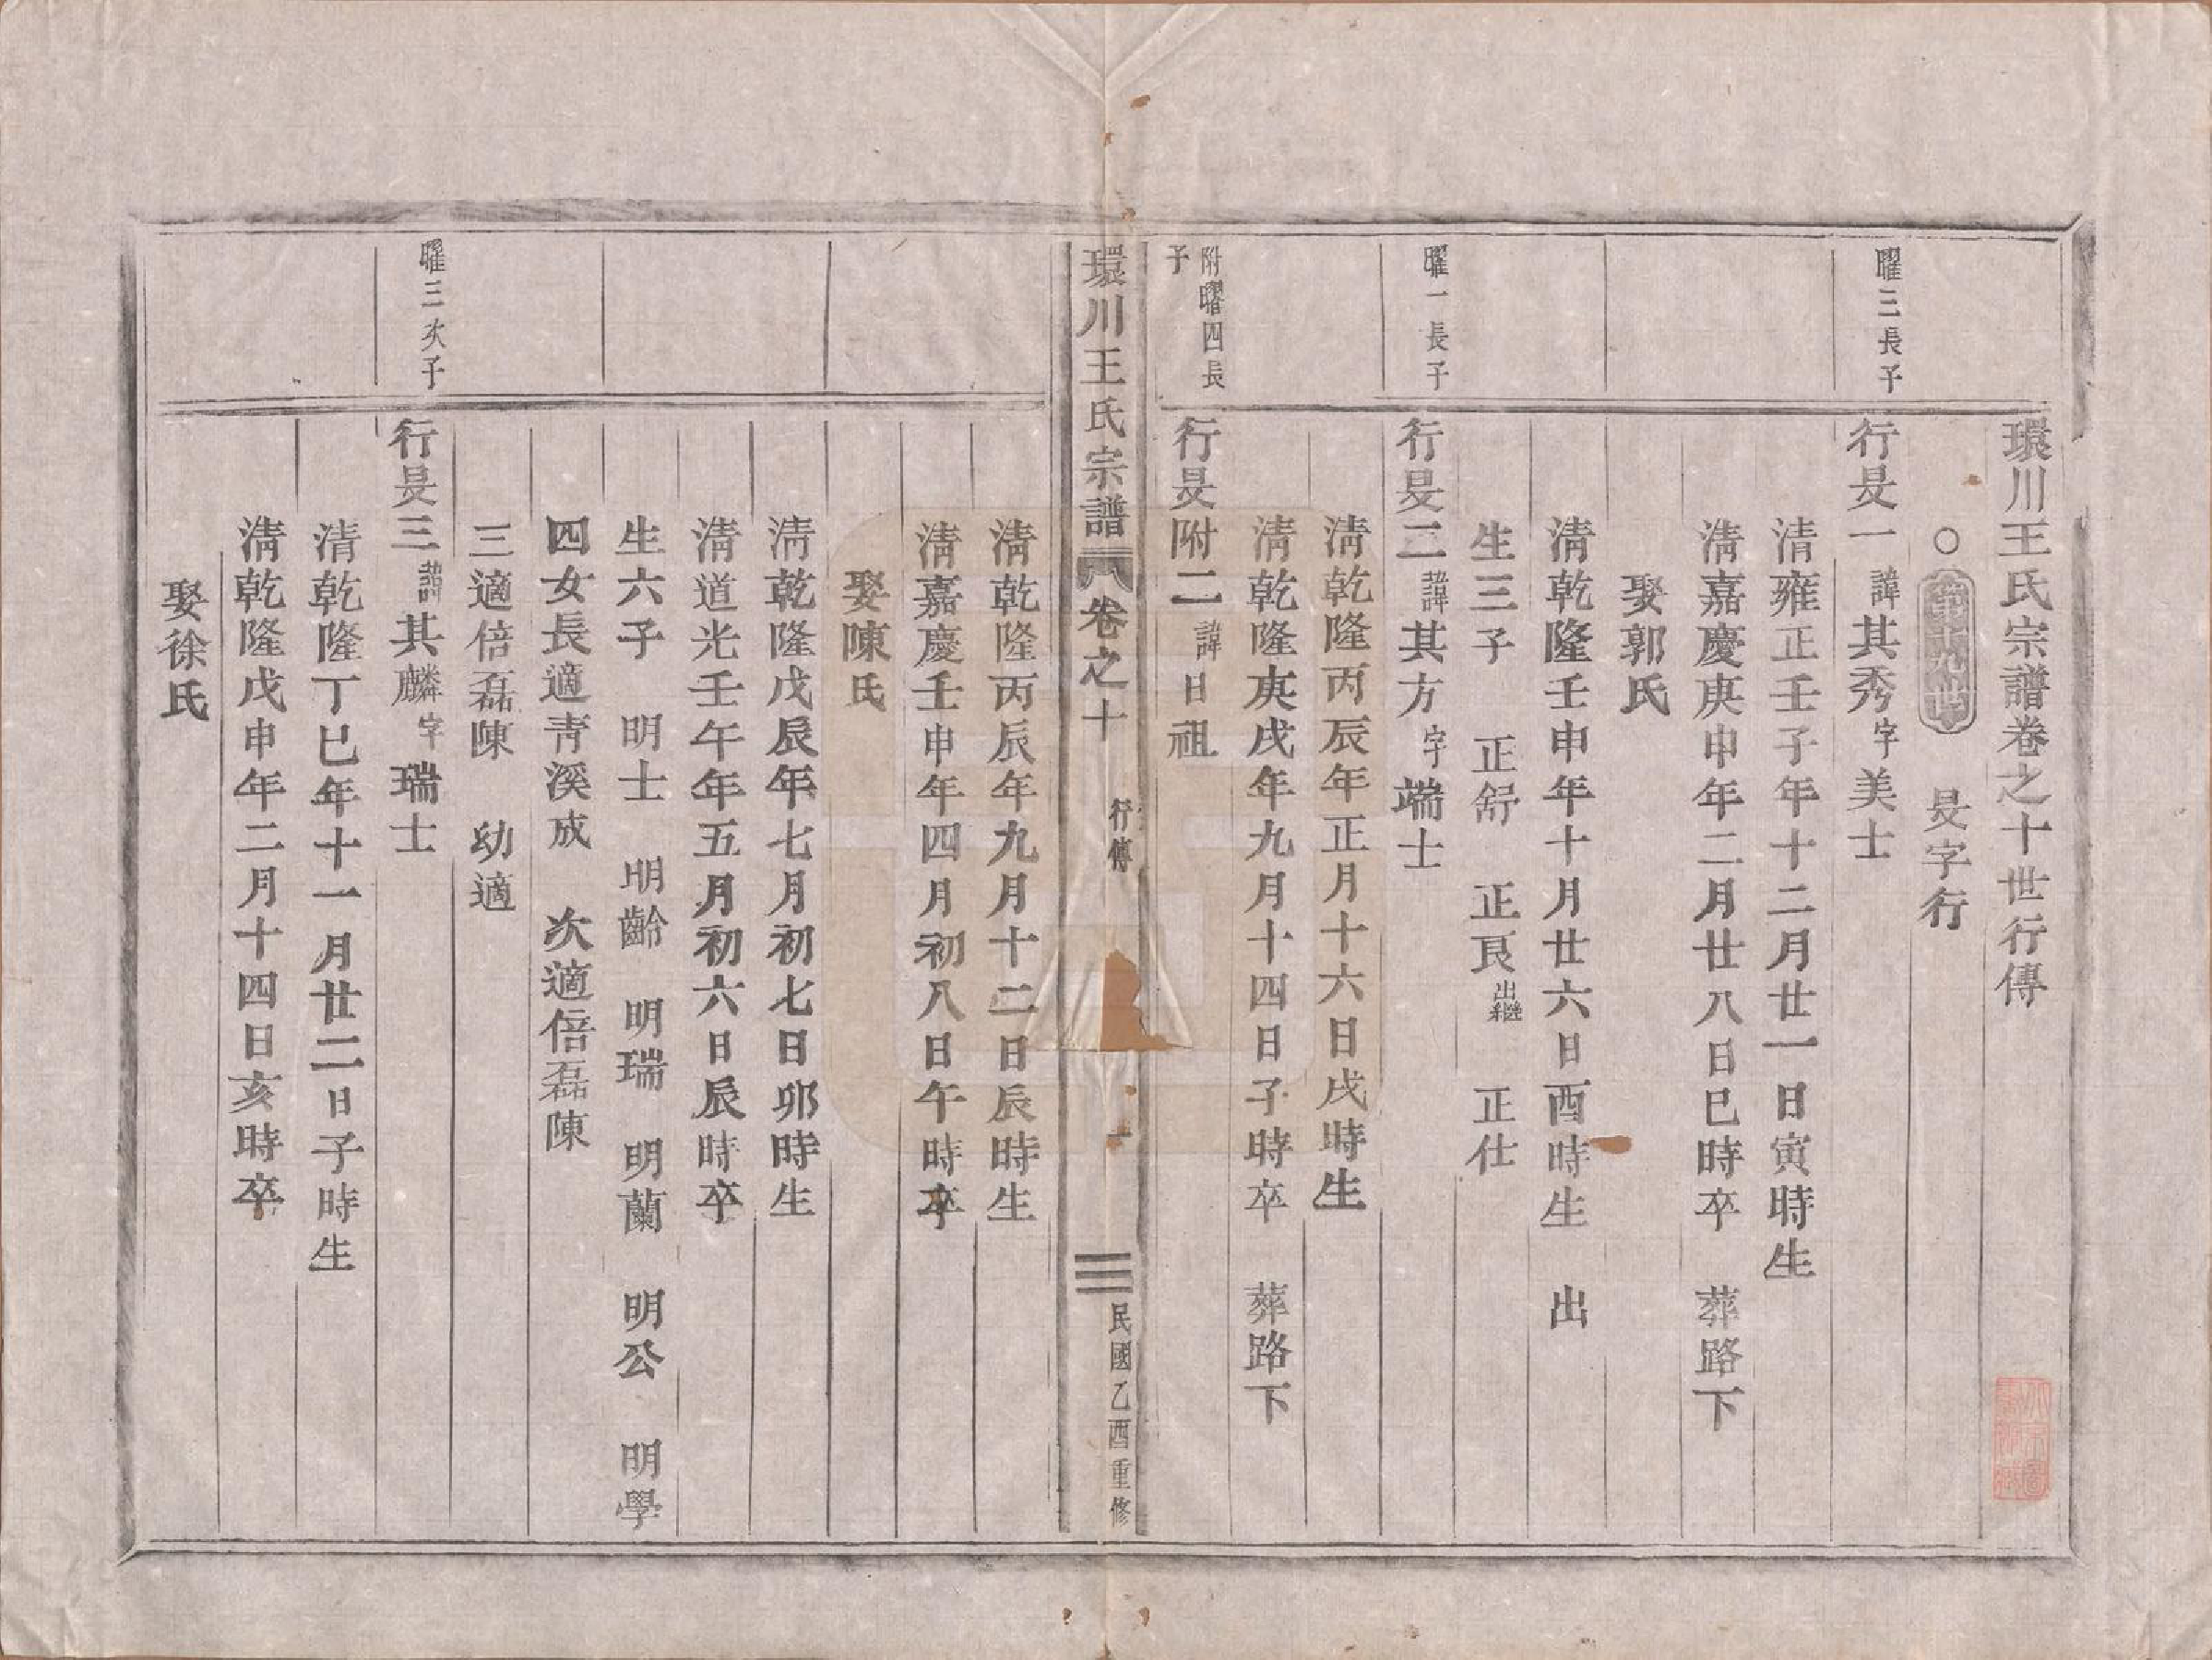 環川王氏宗譜卷之十世行傳
○ 是字行
曜三長子
行是一 諱其秀 字美士
清雍正壬子年十二月廿一日寅時生
清嘉慶庚申年二月廿八日巳時卒 葬路下
娶郭氏
清乾隆壬申年十月廿六日酉時生 出
生三子 正舒 正良出繼 正仕
曜一長子
行是二 諱其方 字端士
清乾隆丙辰年正月十六日戌時生
清乾隆庚戌年九月十四日子時卒 葬路下
附曜四長子
行是附二 諱日祖
環川王氏宗譜 卷之十 行傳 一 民國乙酉重修
清乾隆丙辰年九月十二日辰時生
清嘉慶壬申年四月初八日午時卒
娶陳氏
清乾隆戊辰年七月初七日卯時生
清道光壬午年五月初六日辰時卒
生六子 明士 明齡 明瑞 明蘭 明公 明學
四女長適青溪成 次適倍磊陳
三適倍磊陳 幼適
曜三次子
行是三 諱其麟 字瑞士
清乾隆丁巳年十一月廿二日子時生
清乾隆戊申年二月十四日亥時卒
娶徐氏